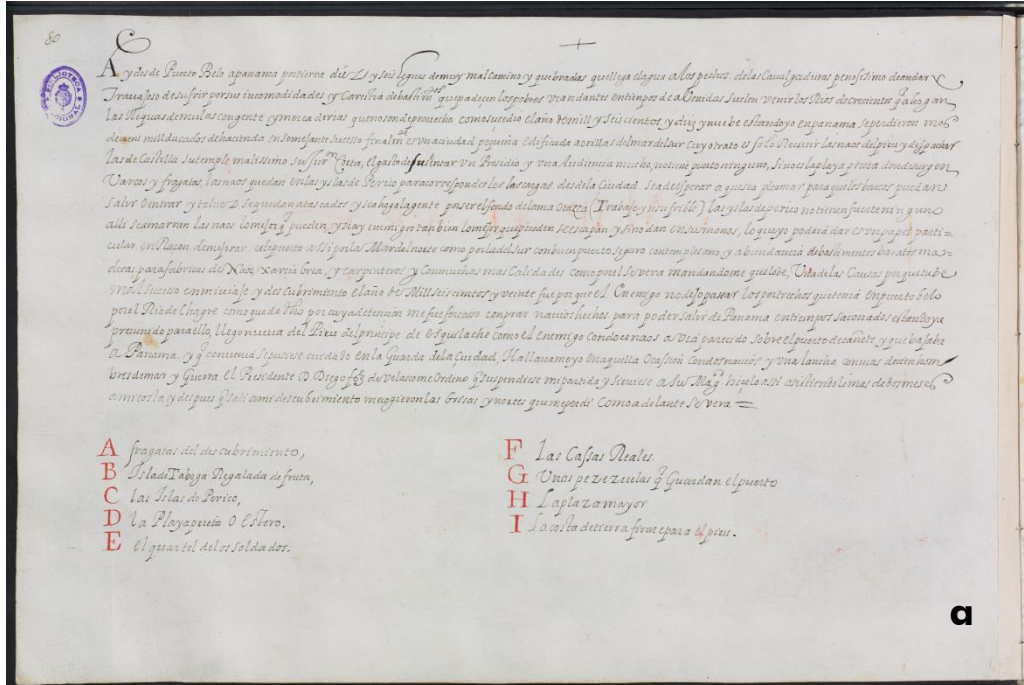 80
Ay desde Puerto Belo a panama por tierra diez y seis leguas de muy mal camino y quebradas que llega el agua a los pechos de las Caualgaduras penosisimo de andar y
Trauajoso de sufrir por sus incomodidades y Carestia de bastimos que padecen los pobres viandantes en tienpos de abenidas suelen venir los Rios de crecientes q ahogan
las Requas de mulas con gente y mercaderias que no son de prouecho como sucedio el año de mill y seis cientos y diez y nuebe estando yo en panama se perdieron mas
de cient mill ducados de hacienda en semejante sucesso finalmte es vna ciudad pequeña edificada a orillas del mar del sur Cuyo trato es solo Receuir las naos del piru y despachar
las de Castilla su temple malissimo su gasto de sustentar vn Presidio y vna Audiencia mucho, no tiene puerto ninguno, sino es la playa prieta donde surgen
Varcos y fragatas, las naos quedan en las yslas de Perico para corresponderles las cargas desde la Ciudad se a de esperar a que sea pleamar para que los barcos puedan
salir O entrar y tal uez se quedan atascados y se ahoga la gente por ser el fondo de lama (Trabajo ynsufrible) las yslas de perico no tienen fuerte ningun
alli se amarran las naos lo mejor q pueden, y si ay enemigo tanbien lo mejor que pueden se escapan y sino dan en sus manos, lo qu yo podria dar es vn papel parti-
cular en Racon de mejorar este puesto assi por la Mar del norte como por la del sur con buen puerto seguro con templesano, y abundancia de bastimentos baratos ma-
deras para fabricas de Naos xarcia brea, y carpinteros y Con muchas mas Calidades como se vera mandandome que lo de, Vna de las Causas por que tube
mal Sucesso en mi viaje y descubrimiento el año de Mill seiscientos y veinte fue por que el Enemigo no dejo passar los pertrechos que tenia en puerto belo
por el Rio de Chagre como queda dho por cuya detencion me fue forcoso conprar nauios hechos para poder salir de Panama en tienpos saconados estando ya
preuenido para ello, llego nueua del Piru del prinsipe de Esquilache como el enemigo con doce naos avia parecido sobre el puerto de cañete y que bajaba
a Panama, y q conuenia se pusiese cuidado en la Guarda de la Ciudad, Hallauame yo en aquella Ocasion con dos nauios, y vna lancha con mas de cien hom
bres de mar y Guerra El Presidente D Diego frz de Velasco me Ordeno q suspendiese mi partida y siruiese a Su Magd hiçelo assi asistiendo mas de
a mi costa y despues q sali a mi descubrimiento me cogieron las brisas, y nortes que me perdi Como adelante se vera
A fragatas del descubrimiento,
B Isla de Taboga Regalada de fruta,
C las Islas de Perico,
D la Playa prieta O Estero.
E el quartel de los soldados.
F las Cassas Reales.
G Unas pezezuelas q Guardan el puerto
H La plaza mayor
I La costa de tierra firme para el piru.
a